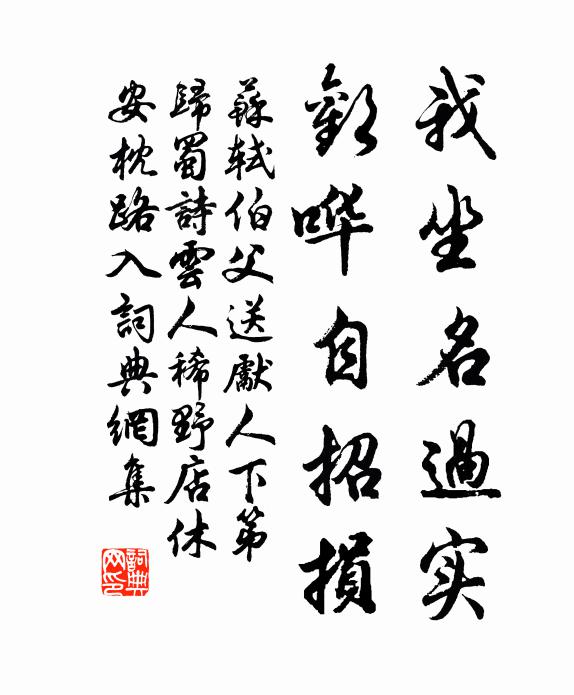 我坐名過实
歡哗自招損
蘇軾伯父送獻人下第
歸蜀詩雲人稀野店休
安枕路入詞典網集
詞典
网印